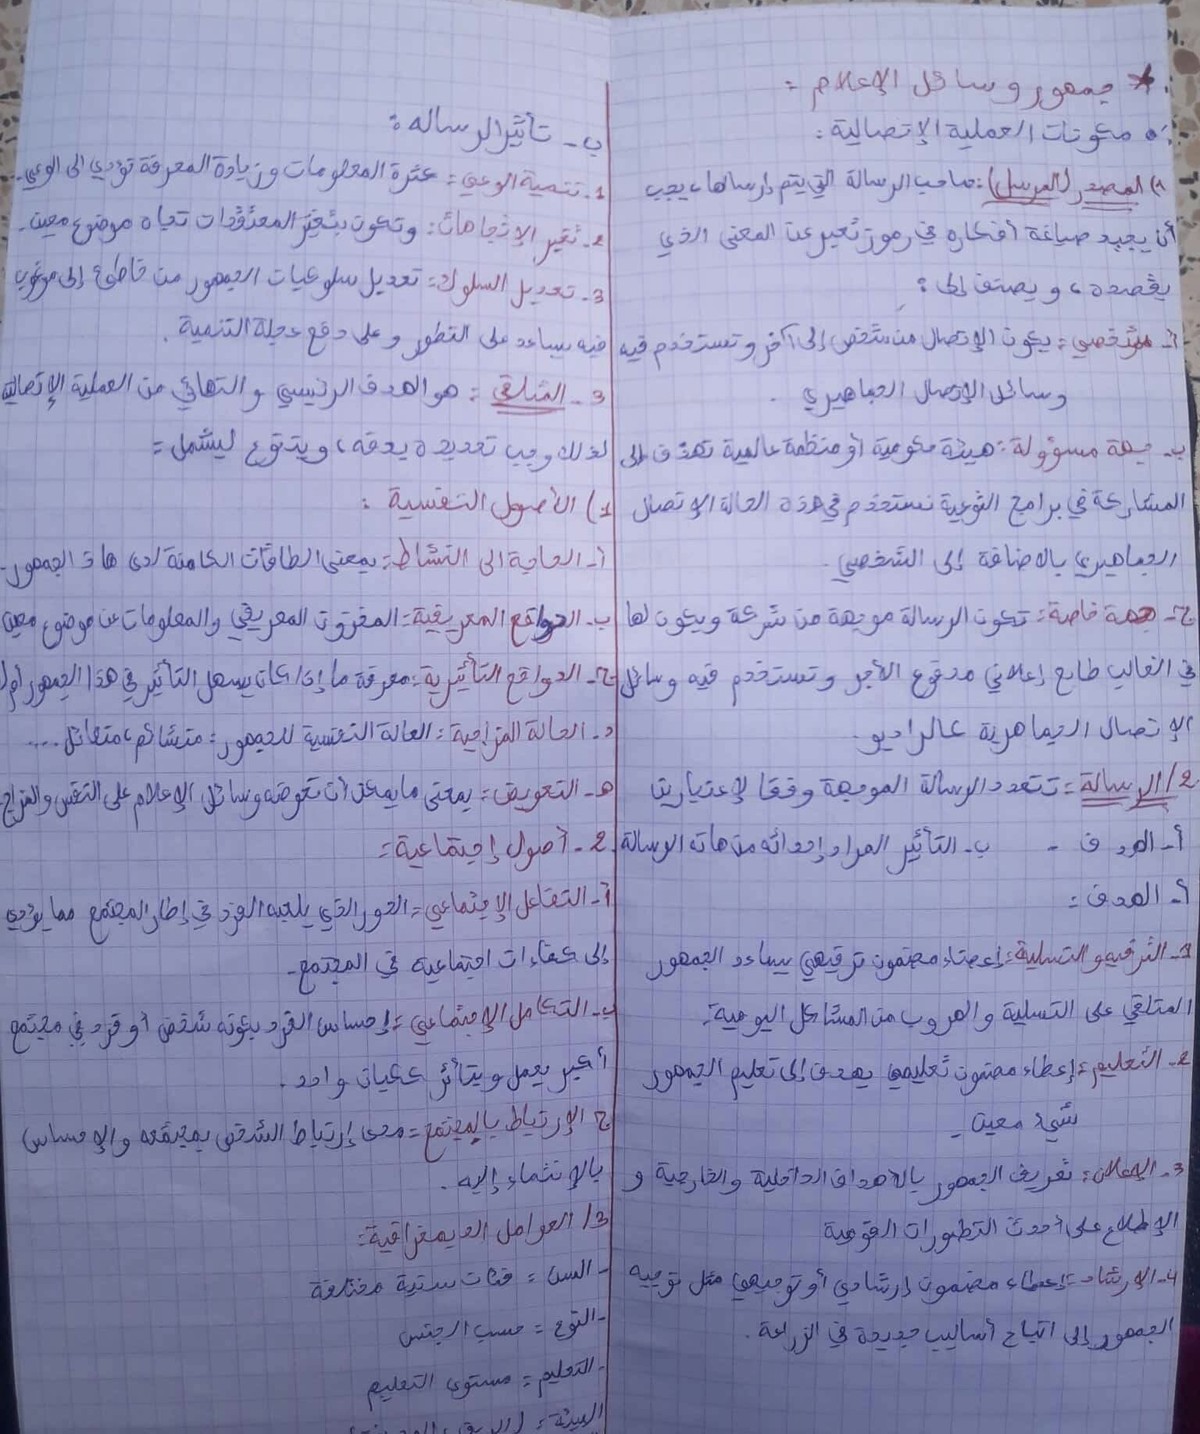 * جمهور وسائل الإعلام :
مكونات العملية الإتصالية :
1) المصدر (المرسل) : صاحب الرسالة التي يتم إرسالها، يجب
أن يجيد صياغة أفكاره في رموز تعبر عن المعنى الذي
يقصده، ويصنف إلى :
أ- شخصي : يكون الإتصال من شخص إلى آخر وتستخدم فيه
وسائل الإتصال الجماهيري .
ب- جهة مسؤولة : هيئة حكومية أو منظمة عالمية تهدف إلى
المشاركة في برامج التوعية نستخدم في هذه الحالة الإتصال
الجماهيري بالاضافة إلى الشخصي .
ج- جهة خاصة : تكون الرسالة موجهة من شركة ويكون لها
في الغالب طابع إعلاني مدفوع الأجر وتستخدم فيه وسائل
الإتصال الجماهرية كالراديو .
2/ الرسالة : تتعدد الرسالة الموجهة وفقا لإعتبارين
أ- الهدف - ب- التأثير المراد إحداثه من هاته الرسالة
أ- الهدف :
1- الترفيه والتسلية : إعطاء مضمون ترفيهي يساعد الجمهور
المتلقي على التسلية والهروب من المشاكل اليومية .
2- التعليم : إعطاء مضمون تعليمي يهدف إلى تعليم الجمهور
شيء معين -
3- الإعلان : تعريف الجمهور بالأهداف الداخلية والخارجية و
الإطلاع على أحدث التطورات القومية
4- الإرشاد : إعطاء مضمون إرشادي أو توجيهي مثل توجيه
الجمهور إلى اتباع أساليب جديدة في الزراعة .
ب- تأثير الرساله :
1- تنمية الوعي : كثرة المعلومات وزيادة المعرفة تؤدي الى الوعي -
2- تغير الإتجاهات : وتكون بتغير المعتقدات تجاه موضوع معين -
3- تعديل السلوك : تعديل سلوكيات الجمهور من خاطئ إلى مرغوب
فيه يساعد على التطور وعلى دفع عجلة التنمية .
3- المتلقي : هو الهدف الرئيسي والنهائي من العملية الإتصالية
لذلك وجب تحديده بدقه، ويتنوع ليشمل :
1) الأصول النفسية :
أ- الحاجة الى النشاط : بمعنى الطاقات الكامنة لدى هاذ الجمهور -
ب- الدوافع المعريفية : المخزون المعريفي والمعلومات عن موضوع معين
ج- الدوافع التأثيرية : معرفة ما إذا كان يسهل التأثير في هذا الجمهور أم لا
د- الحالة المزاجية : الحالة النفسية للجمهور : متشائم، متفائل ....
هـ- التعويض : بمعنى ما يمكن أن تعوضه وسائل الإعلام على النفس والمزاج
2- أصول إجتماعية :
أ- التفاعل الإجتماعي : الدور الذي يلعبه الفرد في إطار المجتمع مما يؤدي
إلى كفاءات اجتماعية في المجتمع -
ب- التكامل الإجتماعي : إحساس الفرد بكونه شخص أو فرد في مجتمع
أكبر يعمل ويتأثر ككيان واحد .
ج- الإرتباط بالمجتمع : مدى إرتباط الشخص بمجتمعه والإحساس
بالإنتماء إليه .
3/ العوامل الديمغرافية :
- السن : فئات سنية مختلفة
- النوع : حسب الجنس
- التعليم : مستوى التعليم
البيئة :